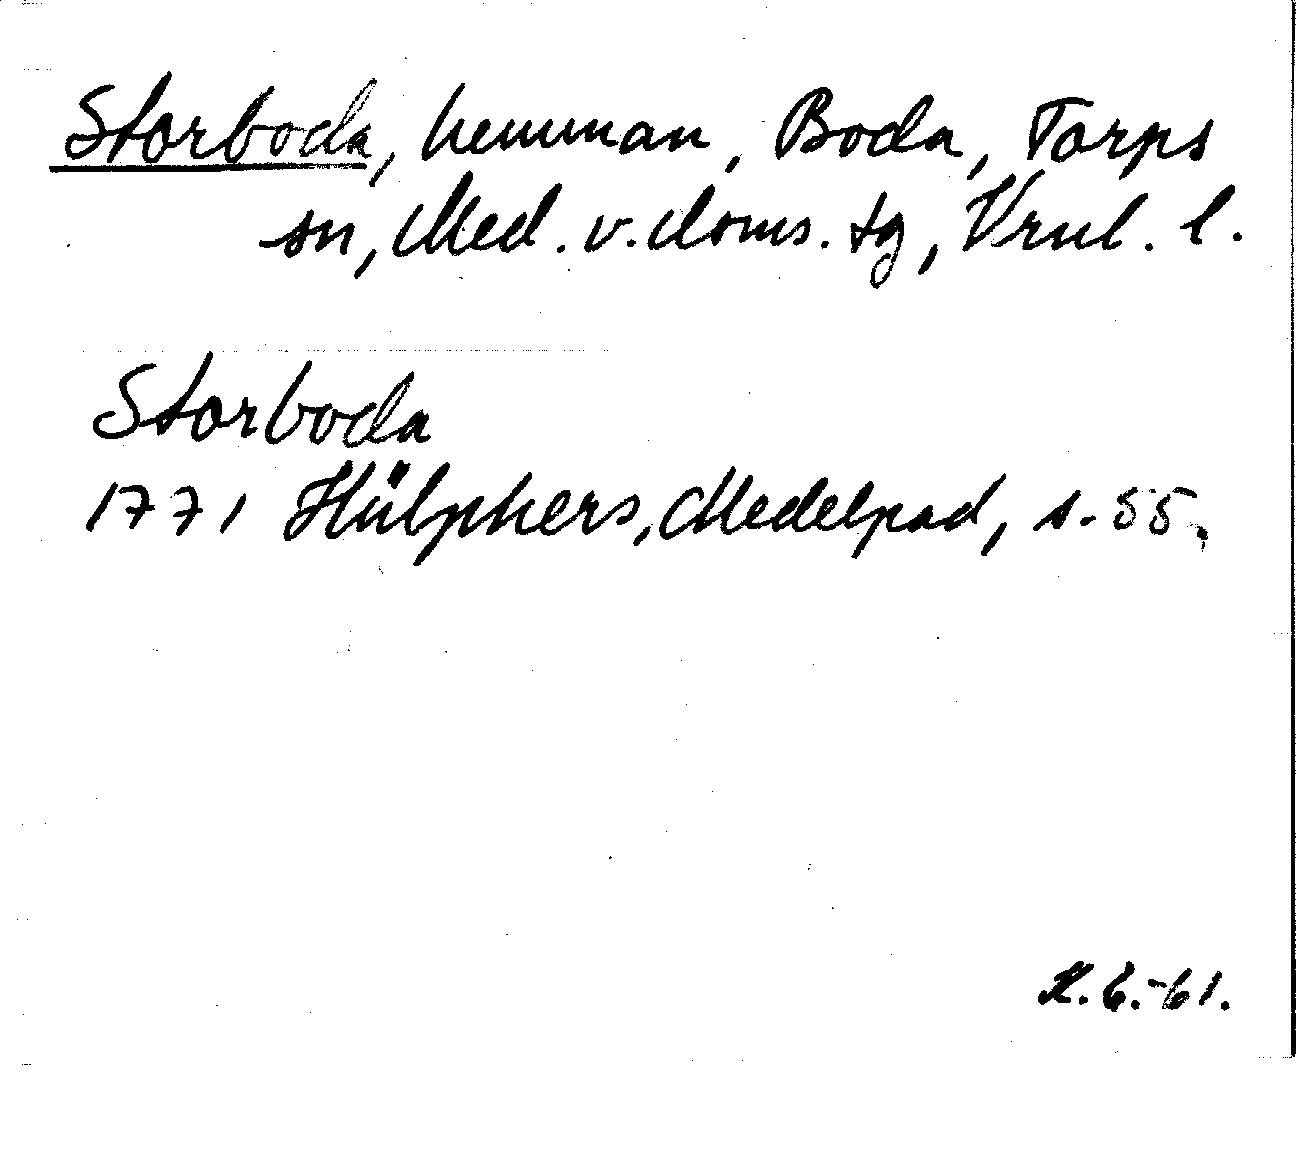 Storboda, hemman, Boda, Torps
sn, Med. v. doms. tg, Vrnl. l.
Storboda
1771 Hülphers, Medelpad, s. 55.
6.-61.